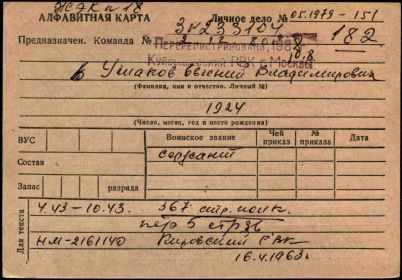 ЖЭК № 18
АЛФАВИТНАЯ КАРТА Личное дело № 05.1979-151
ЗК 233104
Предназначен. Команда № 182
ПЕРЕРЕГИСТРИРОВАНО, 198
РВК г. Москвы
Ушаков Евгений Владимирович
(Фамилия, имя и отчество. Личный №)
1924
(Число, месяц, год и место рождения)
ВУС Воинское звание Чей приказ № приказа Дата
Состав сержант
Запас разряда
Для текста
4.43-10.43. 367 стр. полк.
НМ-2161140 Кировский РВК
16.4.1963г